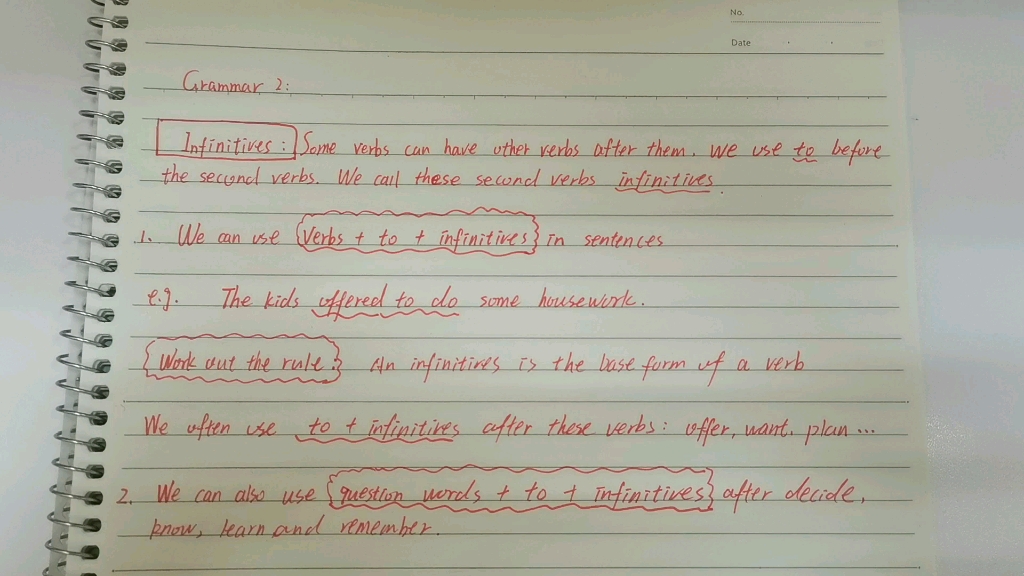 No.
Date
Grammar 2:
Infinitives: Some verbs can have other verbs after them. We use to before
the second verbs. We call these second verbs infinitives.
1. We can use {verbs + to + infinitives} in sentences
e.g. The kids offered to do some housework.
{Work out the rule:} An infinitives is the base form of a verb
We often use to + infinitives after these verbs: offer, want, plan...
2. We can also use {question words + to + infinitives} after decide,
know, learn and remember.